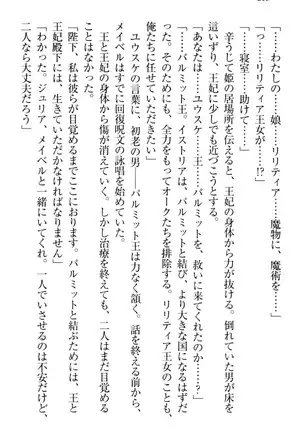 「……わたしの……娘……リリティア……魔物に、魔術を……」
「っ……リリティア王女が……!?」
「……寝室……助けて……」
辛うじて姫の居場所を伝えると、王妃の身体から力が抜ける。倒れていた男が床を
這いずり、王妃に近づこうとする。
「あなたは……ユウスケ……王……パルミットを、救いに来てくださったのか……?」
「……パルミット王。イストリアは、パルミットと結び、より大きな国になるはずだ
った。そのためにも、全力をもってオークたちを排除する。リリティア王女のことも、
俺たちに任せていただきたい」
ユウスケの言葉に、初老の男――パルミット王は力なく頷く。話を終える前から、
メイベルはすでに回復呪文の詠唱を始めていた。
王と王妃の身体から傷が消えていく。しかし治療を終えても、二人はまだ目覚める
ことはなかった。
「陛下、私は彼らが目覚めるまでここにおります。パルミットと結ぶためには、王と
王妃殿下には、生きていただかなければなりません」
「わかった。ジュリア、メイベルと一緒にいてくれ。一人でいさせるのは不安だけど、
二人なら大丈夫だろう」